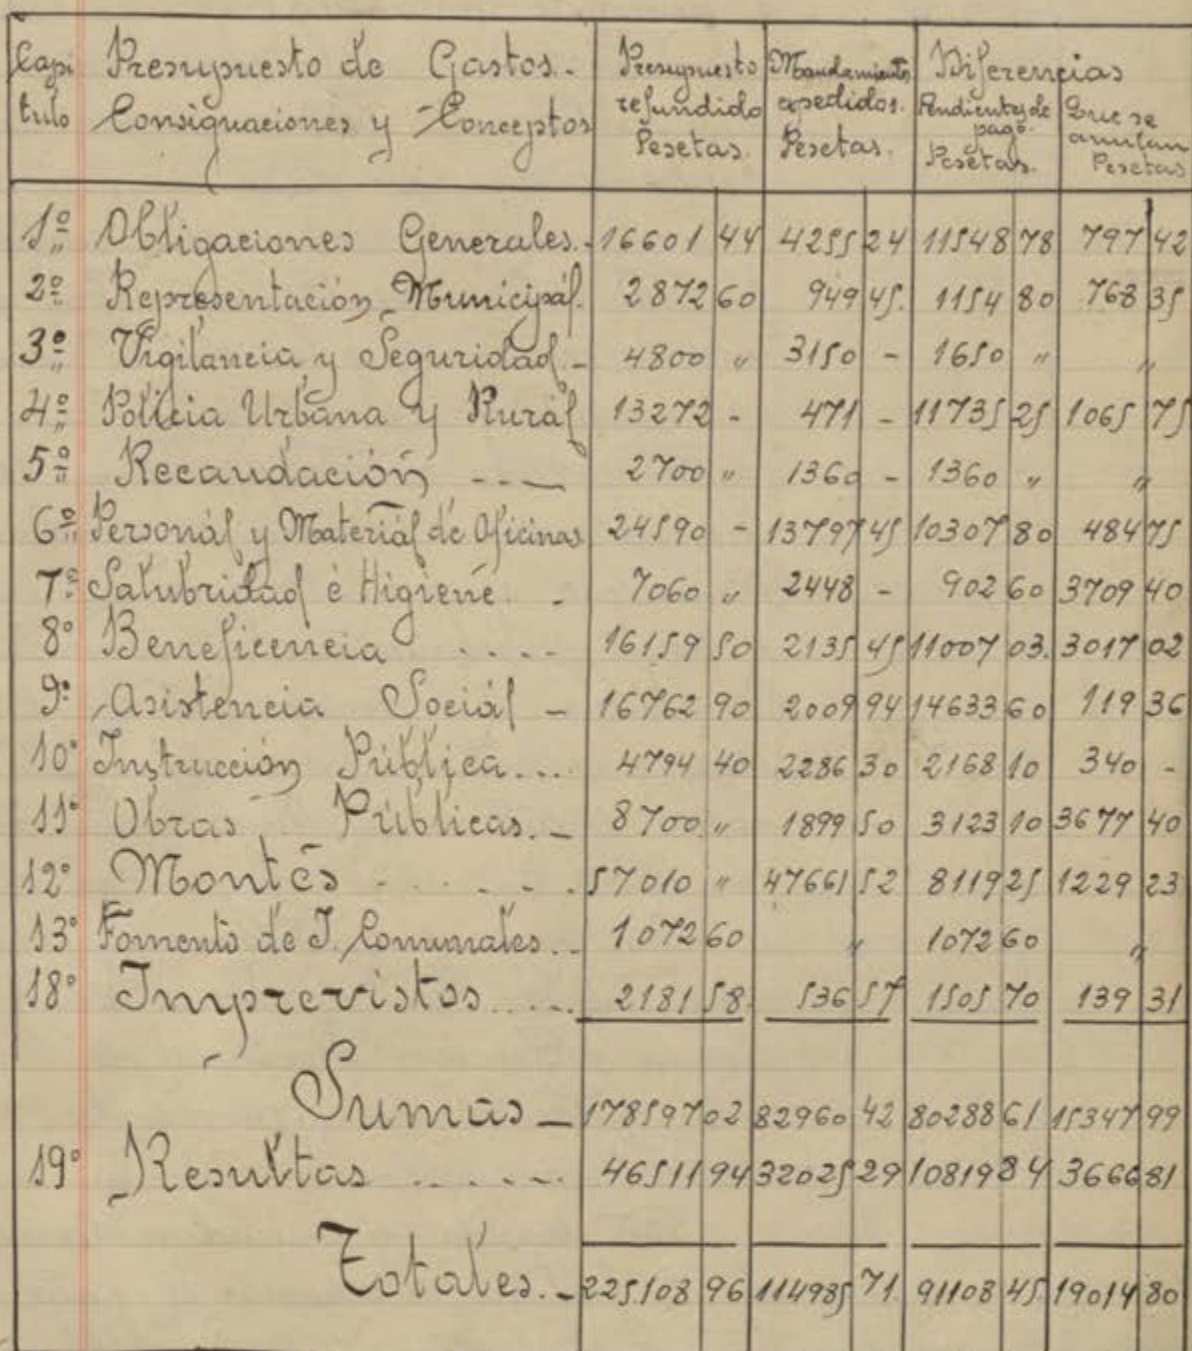 Capi Presupuesto de Gastos.- Presupuesto Mandamientos Diferencias
tulo Consignaciones y Conceptos refundido expedidos. Pendientes de pago. Que se anulan
Pesetas. Pesetas. Pesetas. Pesetas
1º Obligaciones Generales.- 16601 44 4255 24 11548 78 797 42
2º Representación Municipál. 2872 60 949 45. 1154 80 768 35
3º Vigilancia y Seguridad.- 4800 " 3150 - 1650 " "
4º Policia Urbana y Rurál 13272 - 471 - 11735 25 1065 75
5º Recaudación ---- 2700 " 1360 - 1360 " "
6º Personál y Materiál de Oficinas 24590 - 13797 45 10307 80 484 75
7º Salubridad é Higiene. - 7060 " 2448 - 902 60 3709 40
8º Beneficencia .... 16159 50 2135 45 11007 03. 3017 02
9º Asistencia Sociál - 16762 90 2009 94 14633 60 119 36
10º Instrucción Pública... 4794 40 2286 30 2168 10 340 -
11º Obras Públicas.- 8700 " 1899 50 3123 10 3677 40
12º Montes ..... 57010 " 47661 52 8119 25 1229 23
13º Fomento de I. Comunales.. 1072 60 " 1072 60 "
18º Imprevistos..... 2181 58. 536 57 1505 70 139 31
Sumas - 178597 02 82960 42 80288 61 15347 99
19º Resultas ...... 46511 94 32025 29 10819 84 3666 81
Totales.- 225.108 96 114985 71. 91108 45. 19014 80